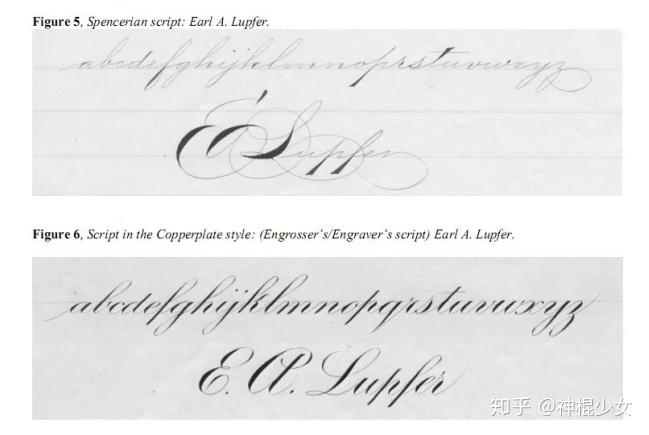 Figure 5, Spencerian script: Earl A. Lupfer.
abcdefghijklmnopqrstuvwxyz
E A Lupfer
Figure 6, Script in the Copperplate style: (Engrosser's/Engraver's script) Earl A. Lupfer.
abcdefghijklmnopqrstuvwxyz
E. A. Lupfer
知乎 @神棍少女